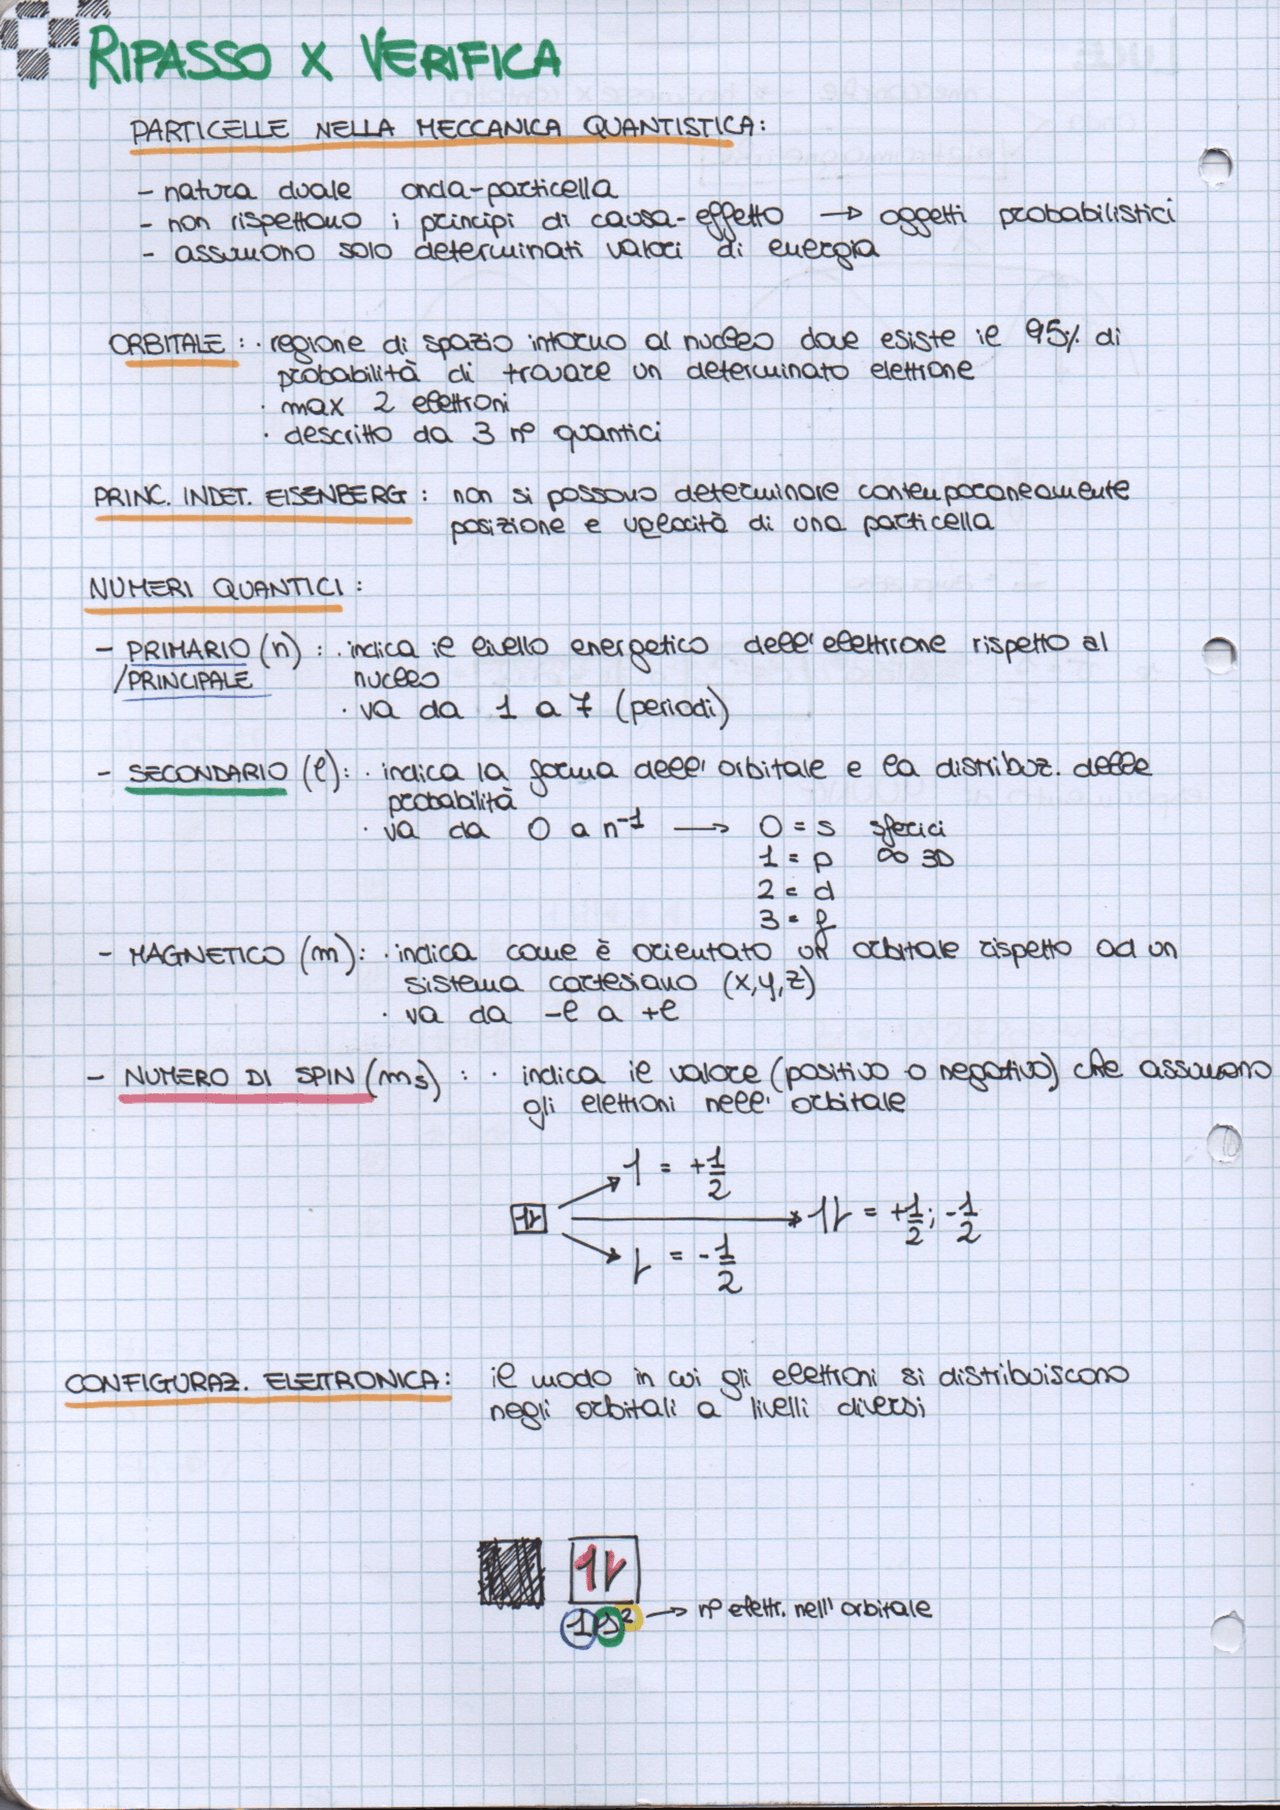 RIPASSO X VERIFICA
PARTICELLE NELLA MECCANICA QUANTISTICA:
- natura duale onda-particella
- non rispettano i principi di causa-effetto → oggetti probabilistici
- assumono solo determinati valori di energia
ORBITALE: · regione di spazio intorno al nucleo dove esiste il 95% di
probabilità di trovare un determinato elettrone
· max 2 elettroni
· descritto da 3 nº quantici
PRINC. INDET. EISENBERG: non si possono determinare contemporaneamente
posizione e velocità di una particella
NUMERI QUANTICI:
- PRIMARIO (n): · indica il livello energetico dell'elettrone rispetto al
/PRINCIPALE nucleo
· va da 1 a 7 (periodi)
- SECONDARIO (l): · indica la forma dell'orbitale e la distribuz. delle
probabilità
· va da 0 a n-1 → 0 = s sferici
1 = p ∞ 3D
2 = d
3 = f
- MAGNETICO (m): · indica come è orientato un orbitale rispetto ad un
sistema cartesiano (x,y,z)
· va da -l a +l
- NUMERO DI SPIN (ms): · indica il valore (positivo o negativo) che assumono
gli elettroni nell'orbitale
↿ = +1/2
↿⇂ → ↿⇂ = +1/2; -1/2
⇂ = -1/2
CONFIGURAZ. ELETTRONICA: il modo in cui gli elettroni si distribuiscono
negli orbitali a livelli diversi
↿⇂
1s² → nº elettr. nell'orbitale